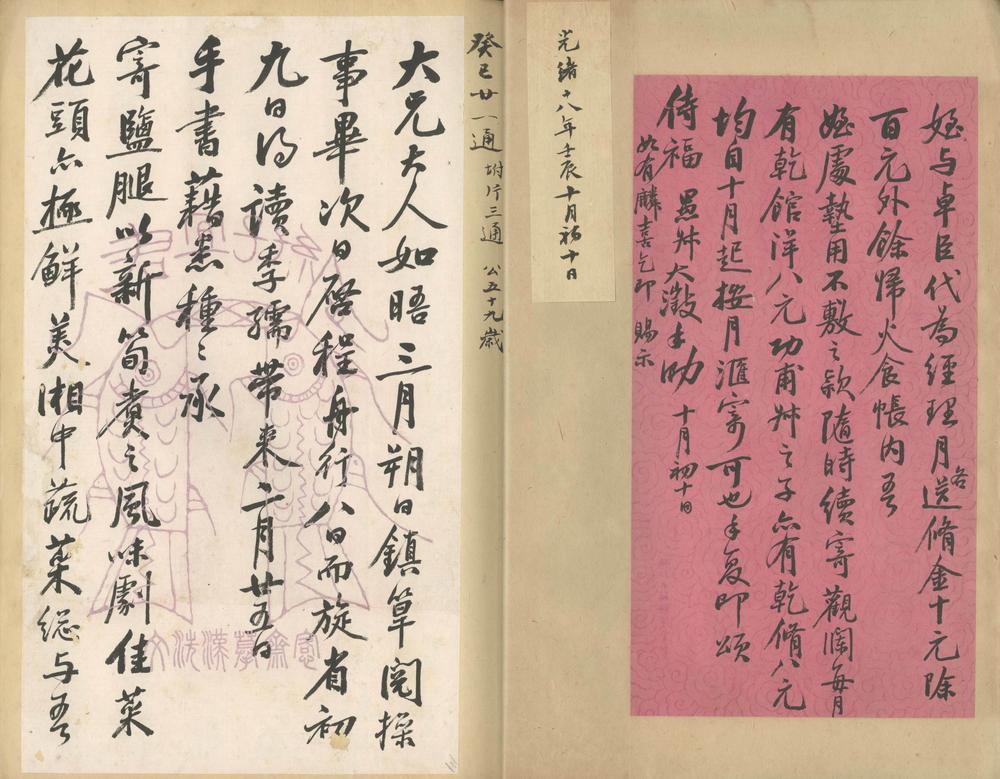 姪与卓臣代為經理月各送脩金十元除
百元外餘帰火食帳内吾
姪處墊用不敷之款隨時續寄觀闈每月
有乾館洋八元功甫舛之子亦有乾脩八元
均自十月起按月滙寄可也手复即頌
侍福 愚舛大澂手泐 十月初十日
如有麟喜乞即賜示
光緒十八年壬辰十月初十日
癸巳廿一通 坿片三通 公五十九歲
大兄大人如晤三月朔日鎮筸閱操
事畢次日啓程舟行八日而旋省初
九日得讀季孺帶來二月廿五日
手書藉悉種〻承
寄鹽腿以新筍煮之風味劇佳菜
花頭亦極鮮美湘中蔬菜總与吾